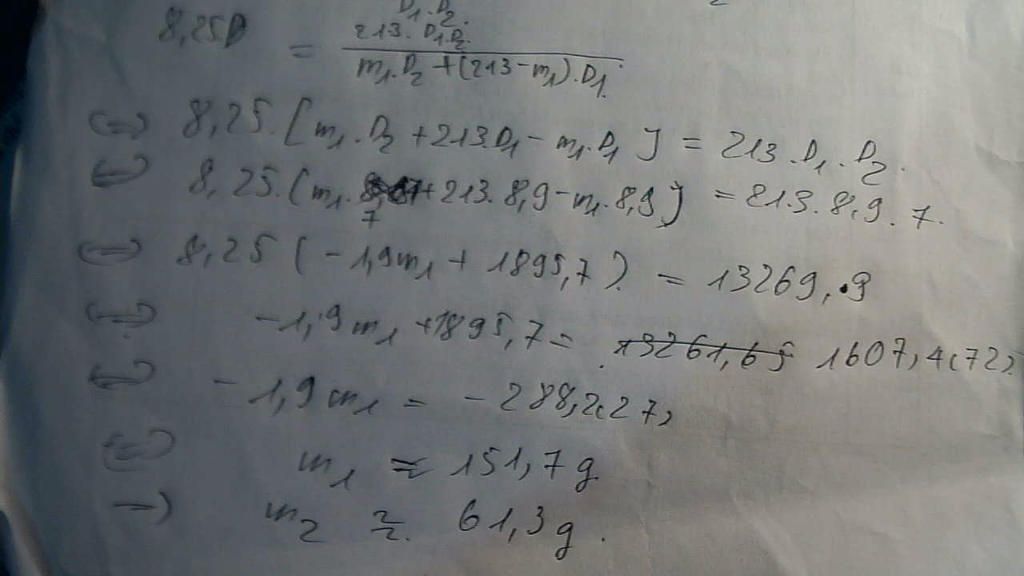 D1.D2.
8,25D = 213.D1.D2 / m1.D2 + (213-m1).D1.
<=> 8,25.[m1.D2 + 213.D1 - m1.D1] = 213.D1.D2.
<=> 8,25.(m1.7 + 213.8,9 - m1.8,9) = 213.8,9.7.
<=> 8,25(-1,9m1 + 1895,7) = 13269,9
<=> -1,9m1 + 1895,7 = 13261,65 1607,4(72)
<=> -1,9m1 = -288,2(27)
<=> m1 ≈ 151,7g
=> m2 ≈ 61,3g.